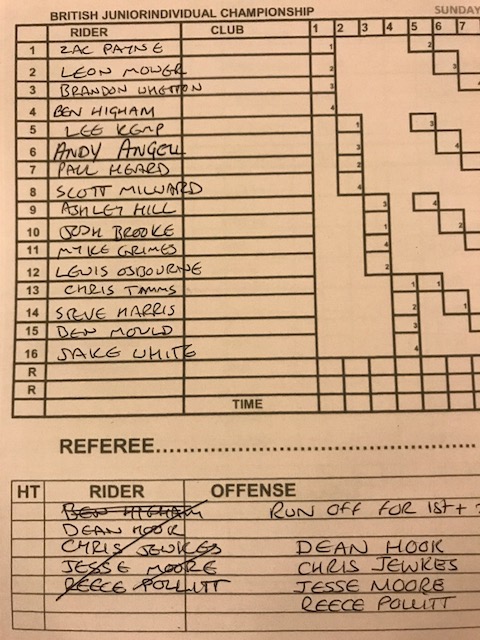 BRITISH JUNIORINDIVIDUAL CHAMPIONSHIP SUNDAY
RIDER CLUB 1 2 3 4 5 6 7
1 ZAC PAYNE 1 2
2 LEON MOWER 2 3
3 BRANDON WHETTON 3 4
4 BEN HIGHAM 4
5 LEE KEMP 1 3
6 ANDY ANGELL 3 4
7 PAUL HEARD 2
8 SCOTT MILWARD 4
9 ASHLEY HILL 3 4
10 JOSH BROOKE 1 2
11 MYKE GRIMES 4
12 LEWIS OSBOURNE 2
13 CHRIS TAMMS 1 1
14 STEVE HARRIS 2 1
15 BEN MOULD 3
16 JAKE WHITE 4
R
R
TIME
REFEREE
HT RIDER OFFENSE
BEN HIGHAM RUN OFF FOR 1ST +
DEAN HOOK
CHRIS JEWKES DEAN HOOK
JESSE MOORE CHRIS JEWKES
REECE POLLITT JESSE MOORE
REECE POLLITT